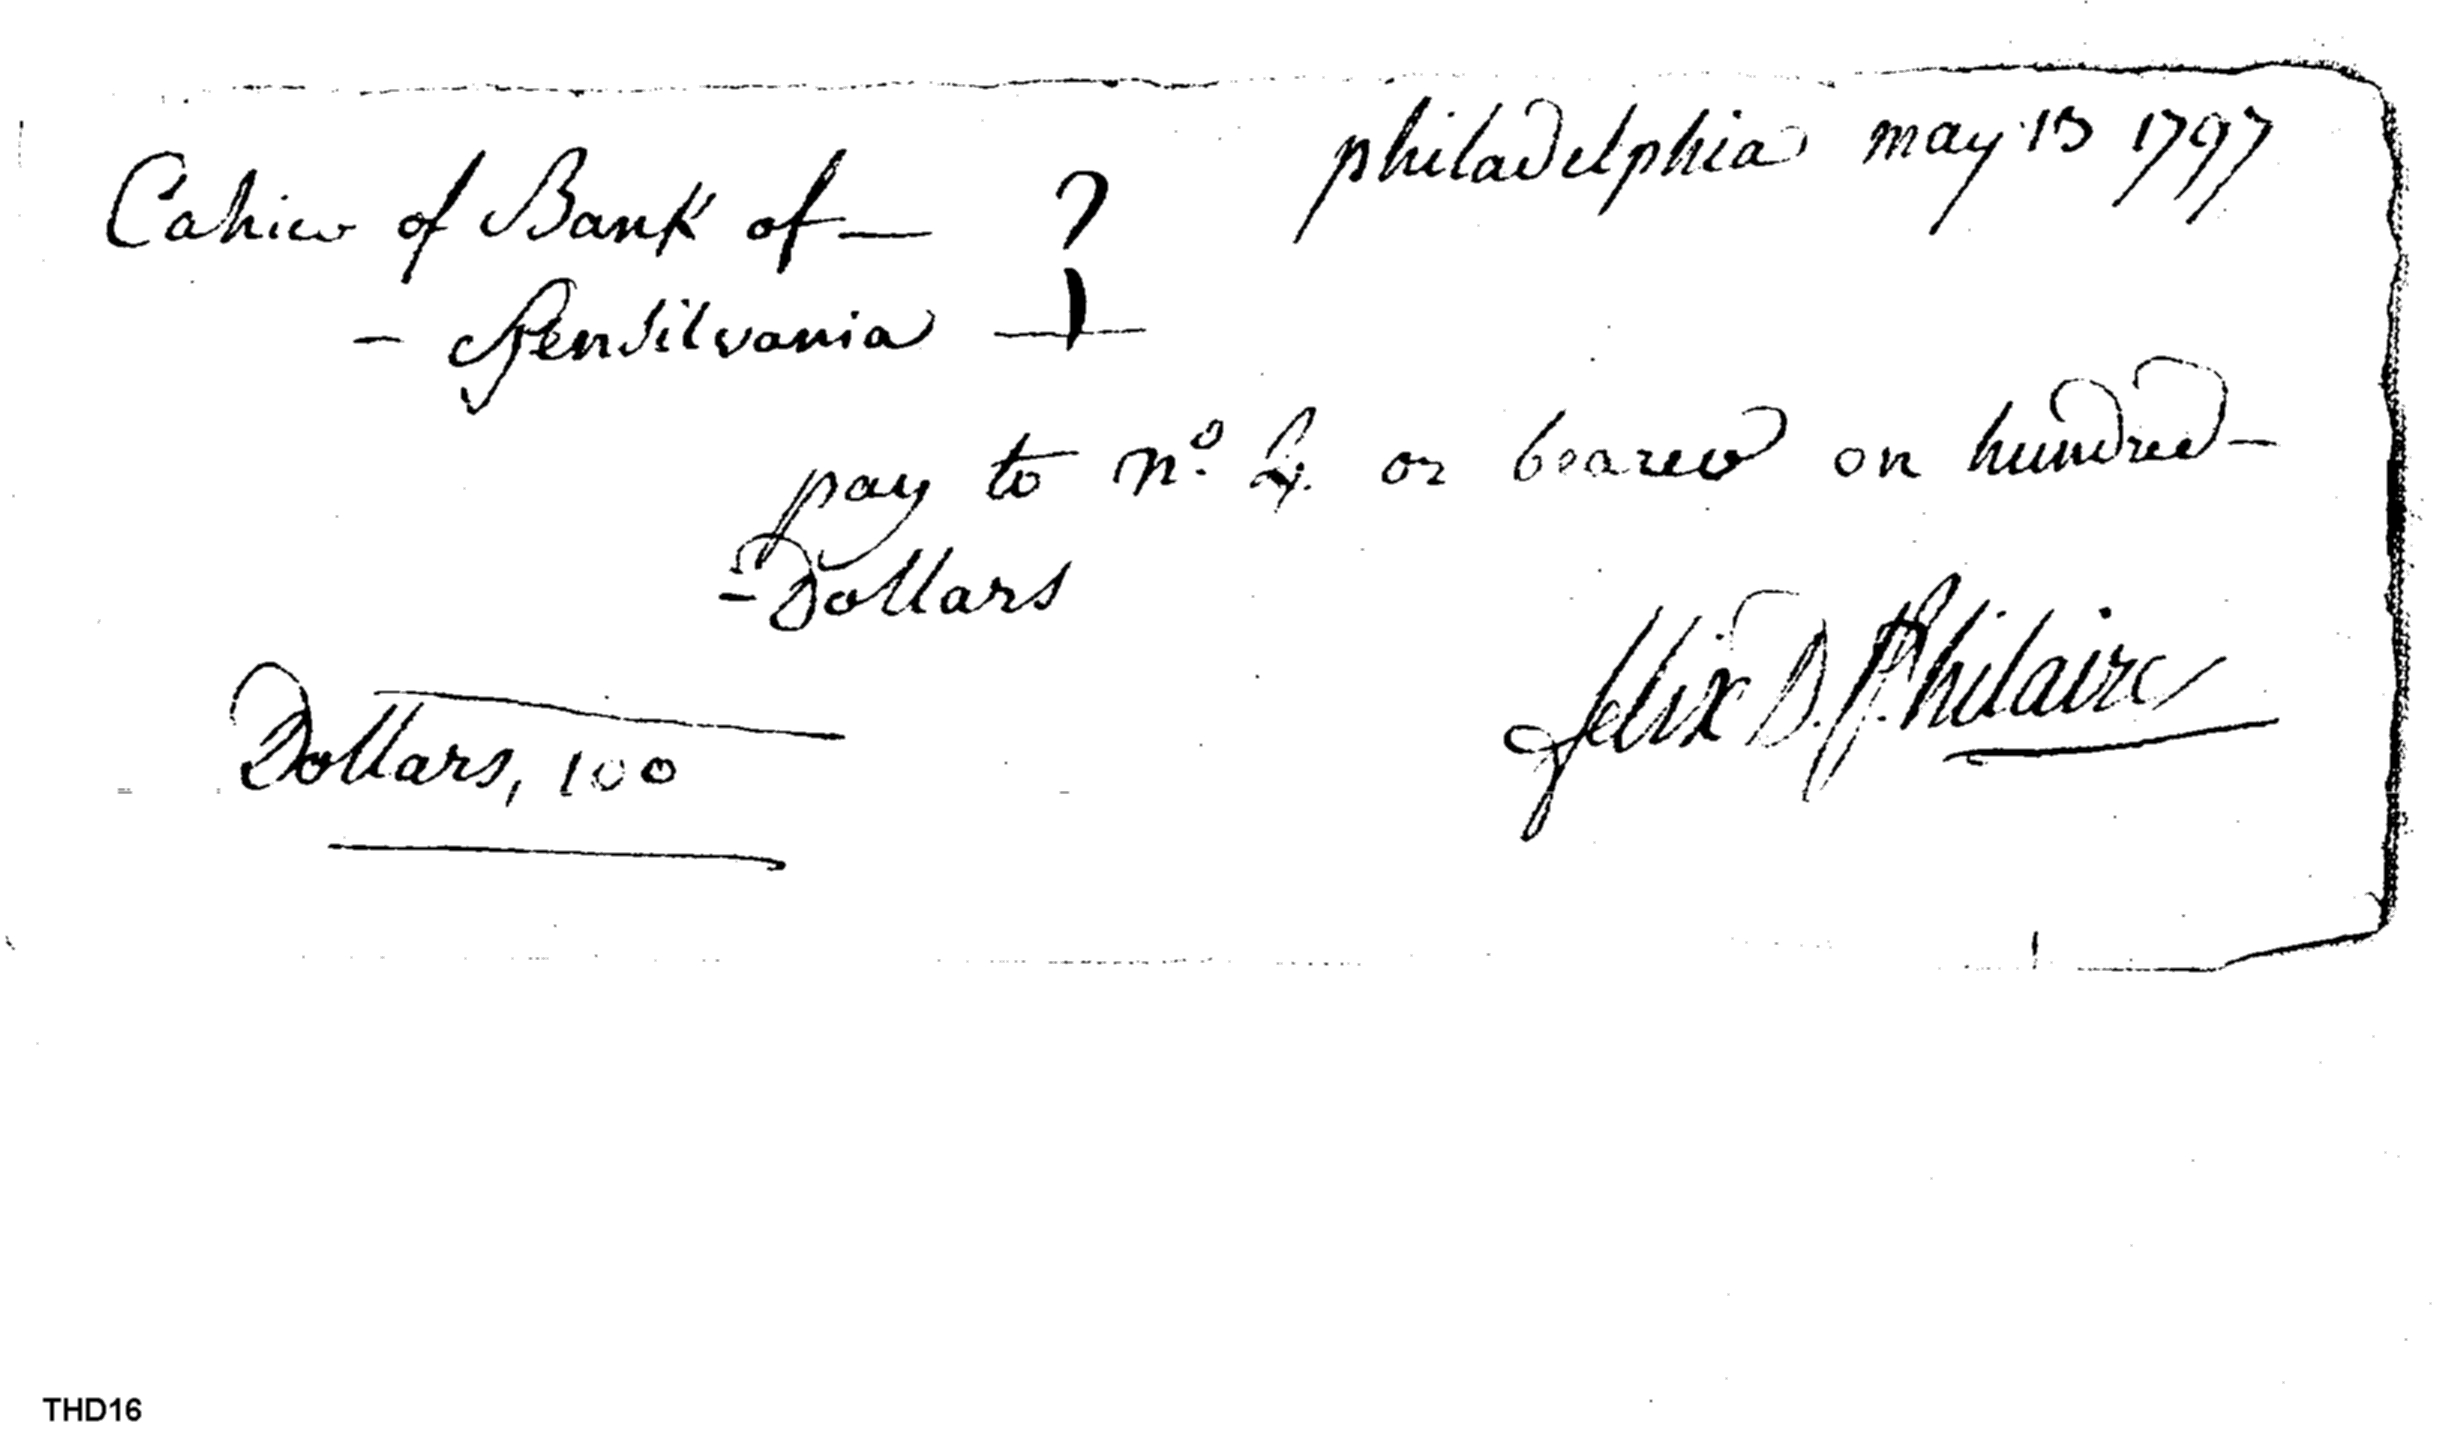 philadelphia may 13 1797
Cahier of Bank of —
- Pensilvania —
pay to n.º 4. or bearer on hundred -
- Dollars
felix D. St. hilaire
Dollars, 100
THD16